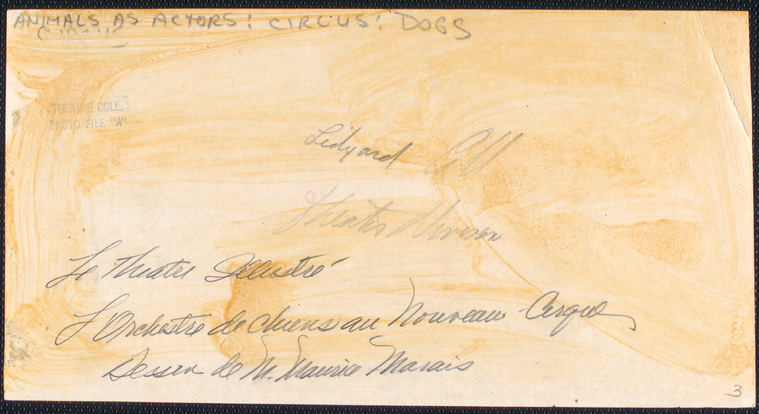 ANIMALS AS ACTORS: CIRCUS: DOGS
Circus
THEATRE COLL.
PHOTO FILE "A"
Lidyard Coll
Theatre Division
Le Theatre Illustré
L'Orchestre de chiens au Nouveau Cirque
Dessin de M. Maurice Marais
3